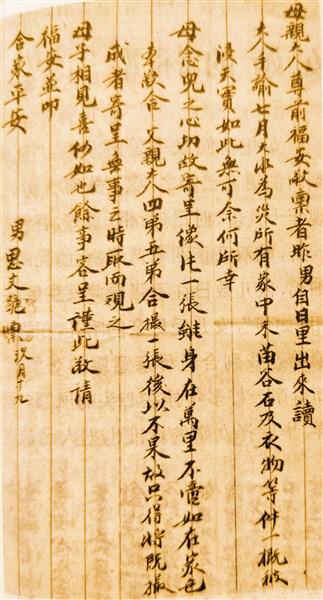 母親大人尊前福安敬稟者昨男自日里出來讀
大人手諭七月大水為災所有家中禾苗谷石及衣物等件一概被
浸天實如此無可奈何所幸
母念兒之心切故寄呈像片一張雖身在萬里不啻如在家也
東欲合父親大人四弟五弟合撮一張後以不果故只得將既撮
成者寄呈無事之時取而視之
母子相見喜何如也餘事容呈謹此敬請
福安並叩
合家平安
男思文跪稟玖月十九